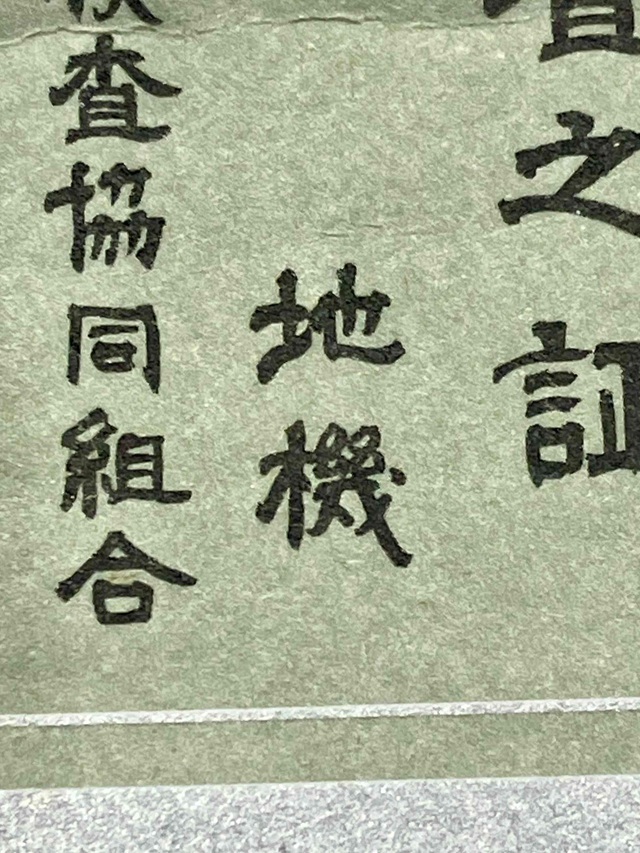 之証
地機
査協同組合